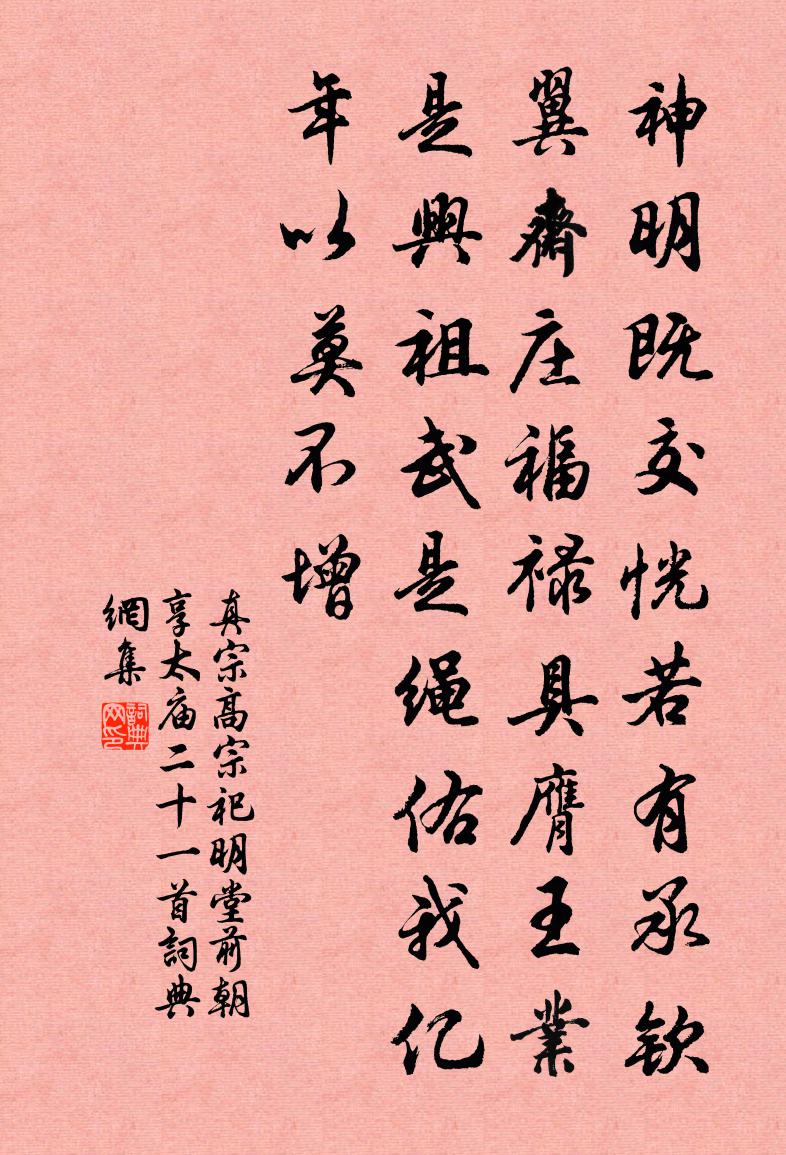 神明既交恍若有承钦
翼齋庄福禄具膺王業
是興祖武是绳佑我亿
年以莫不增
真宗高宗祀明堂前朝
享太庙二十一首詞典
網集
詞典
网印